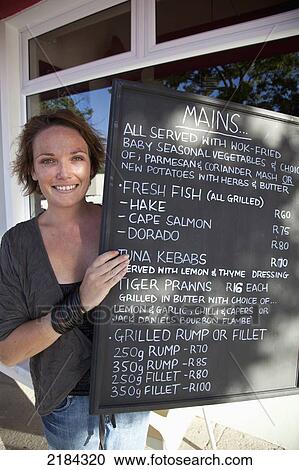 MAINS...
ALL SERVED WITH WOK-FRIED
BABY SEASONAL VEGETABLES & CHOICE
OF; PARMESAN & CORIANDER MASH OR
NEW POTATOES WITH HERBS & BUTTER
- FRESH FISH (ALL GRILLED)
- HAKE R60
- CAPE SALMON R75
- DORADO R80
TUNA KEBABS R70
SERVED WITH LEMON & THYME DRESSING
TIGER PRAWNS R16 EACH
GRILLED IN BUTTER WITH CHOICE OF...
LEMON & GARLIC, CHILLI & CAPERS OR
JACK DANIELS BOURBON FLAMBÉ
- GRILLED RUMP OR FILLET
250g RUMP - R70
350g RUMP - R85
250g FILLET - R80
350g FILLET - R100
fotosearch
2184320 www.fotosearch.com